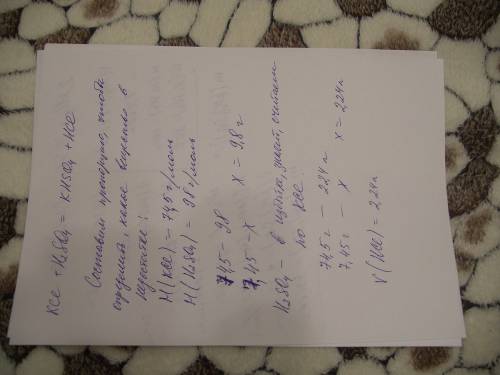 KCl + H₂SO₄ = KHSO₄ + HCl
Составим пропорцию, чтобы
определить, какое вещество в
недостатке:
M(KCl) = 74,5 г/моль
M(H₂SO₄) = 98 г/моль
74,5 – 98
7,45 – x x = 9,8 г
H₂SO₄ – в избытке, значит, считаем
по KCl.
74,5 г – 22,4 л
7,45 г – x x = 2,24 л
V(HCl) = 2,24 л